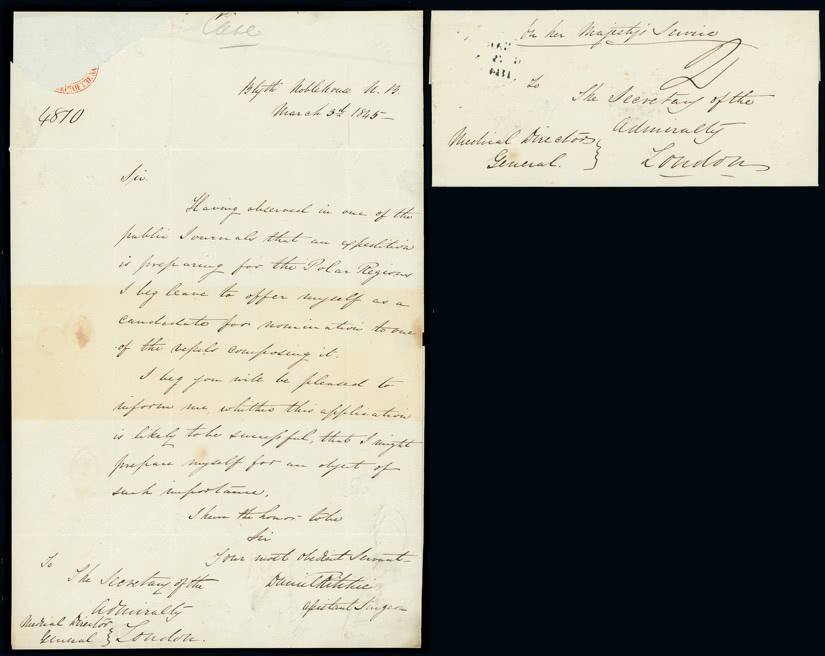 Case
4810
Blyth Noblehouse N. B.
March 3d. 1845
Sir.
Having observed in one of the
public Journals that an expedition
is preparing for the Polar Regions
I beg leave to offer myself as a
candadate for nomination to one
of the vessels composing it.
I beg you will be pleased to
inform me whether this application
is likely to be successful, that I might
prepare myself for an object of
such importance.
I have the honor to be
Sir
Your most obedient Servant
Daniel Ritchie
Assistant Surgeon
To
The Secretary of the
Admiralty
Medical Director
General } London.
On her Majesty's Service
To
The Secretary of the
Admiralty
Medical Director
General. } London